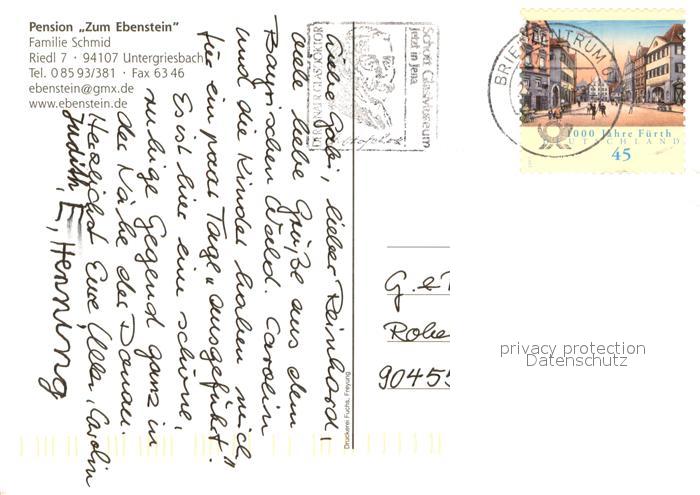 Pension „Zum Ebenstein“
Familie Schmid
Riedl 7 · 94107 Untergriesbach
Tel. 0 85 93/381 · Fax 63 46
ebenstein@gmx.de
www.ebenstein.de
Liebe Gabi, lieber Reinhard,
viele liebe Grüße aus dem
Bayrischen Wald. Carolin
und die Kinder haben mich
für ein paar Tage „ausgeführt“.
Es ist hier eine schöne,
ruhige Gegend ganz in
der Nähe der Donau.
Herzlichst Eure Ulla, Carolin
Judith, E, Henning
Druckerei Fuchs, Freyung
Schott Glasmuseum
jetzt in Jena
BRIEFZENTRUM
1000 Jahre Fürth
DEUTSCHLAND
45
G. &
Robe
9045
privacy protection
Datenschutz